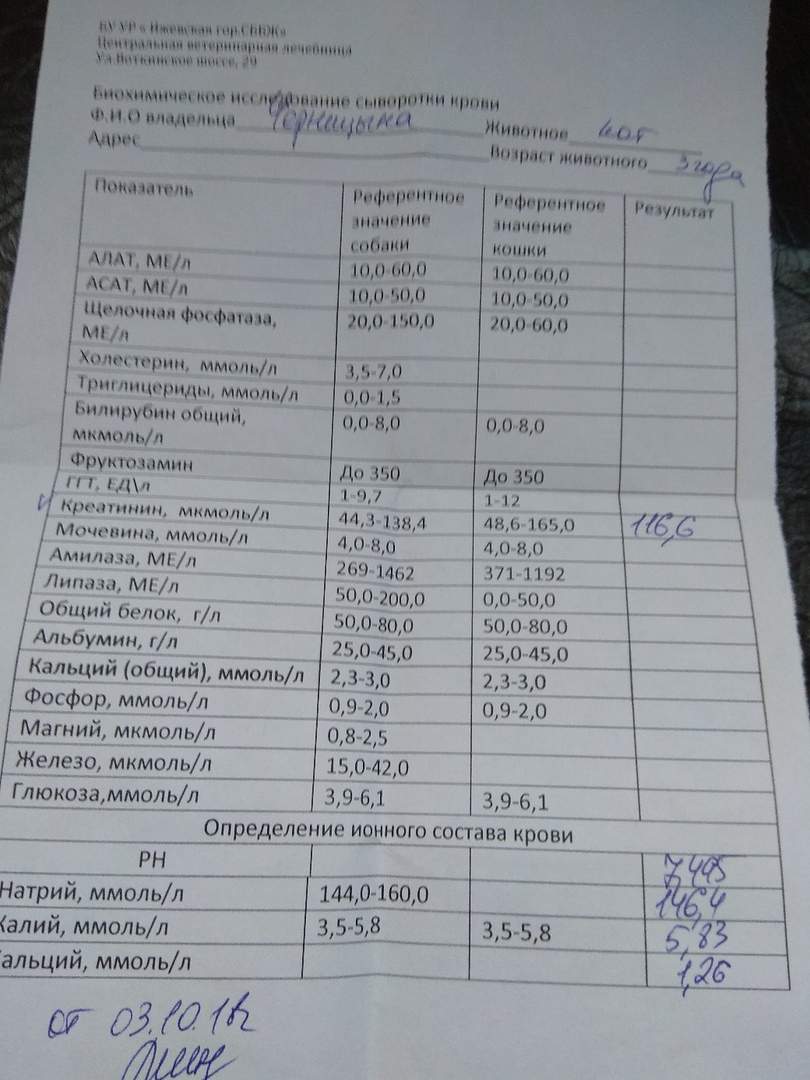 БУ УР « Ижевская гор.СББЖ»
Центральная ветеринарная лечебница
Ул.Воткинское шоссе, 29
Биохимическое исследование сыворотки крови
Ф.И.О владельца Черницына Животное кот
Адрес Возраст животного 3 года
Показатель Референтное значение собаки Референтное значение кошки Результат
АЛАТ, МЕ/л 10,0-60,0 10,0-60,0
АСАТ, МЕ/л 10,0-50,0 10,0-50,0
Щелочная фосфатаза, МЕ/л 20,0-150,0 20,0-60,0
Холестерин, ммоль/л 3,5-7,0
Триглицериды, ммоль/л 0,0-1,5
Билирубин общий, мкмоль/л 0,0-8,0 0,0-8,0
Фруктозамин До 350 До 350
ГГТ, ЕД\л 1-9,7 1-12
Креатинин, мкмоль/л 44,3-138,4 48,6-165,0 116,6
Мочевина, ммоль/л 4,0-8,0 4,0-8,0
Амилаза, МЕ/л 269-1462 371-1192
Липаза, МЕ/л 50,0-200,0 0,0-50,0
Общий белок, г/л 50,0-80,0 50,0-80,0
Альбумин, г/л 25,0-45,0 25,0-45,0
Кальций (общий), ммоль/л 2,3-3,0 2,3-3,0
Фосфор, ммоль/л 0,9-2,0 0,9-2,0
Магний, мкмоль/л 0,8-2,5
Железо, мкмоль/л 15,0-42,0
Глюкоза,ммоль/л 3,9-6,1 3,9-6,1
Определение ионного состава крови
РН 7,495
Натрий, ммоль/л 144,0-160,0 146,4
Калий, ммоль/л 3,5-5,8 3,5-5,8 5,83
альций, ммоль/л 1,26
от 03.10.18г